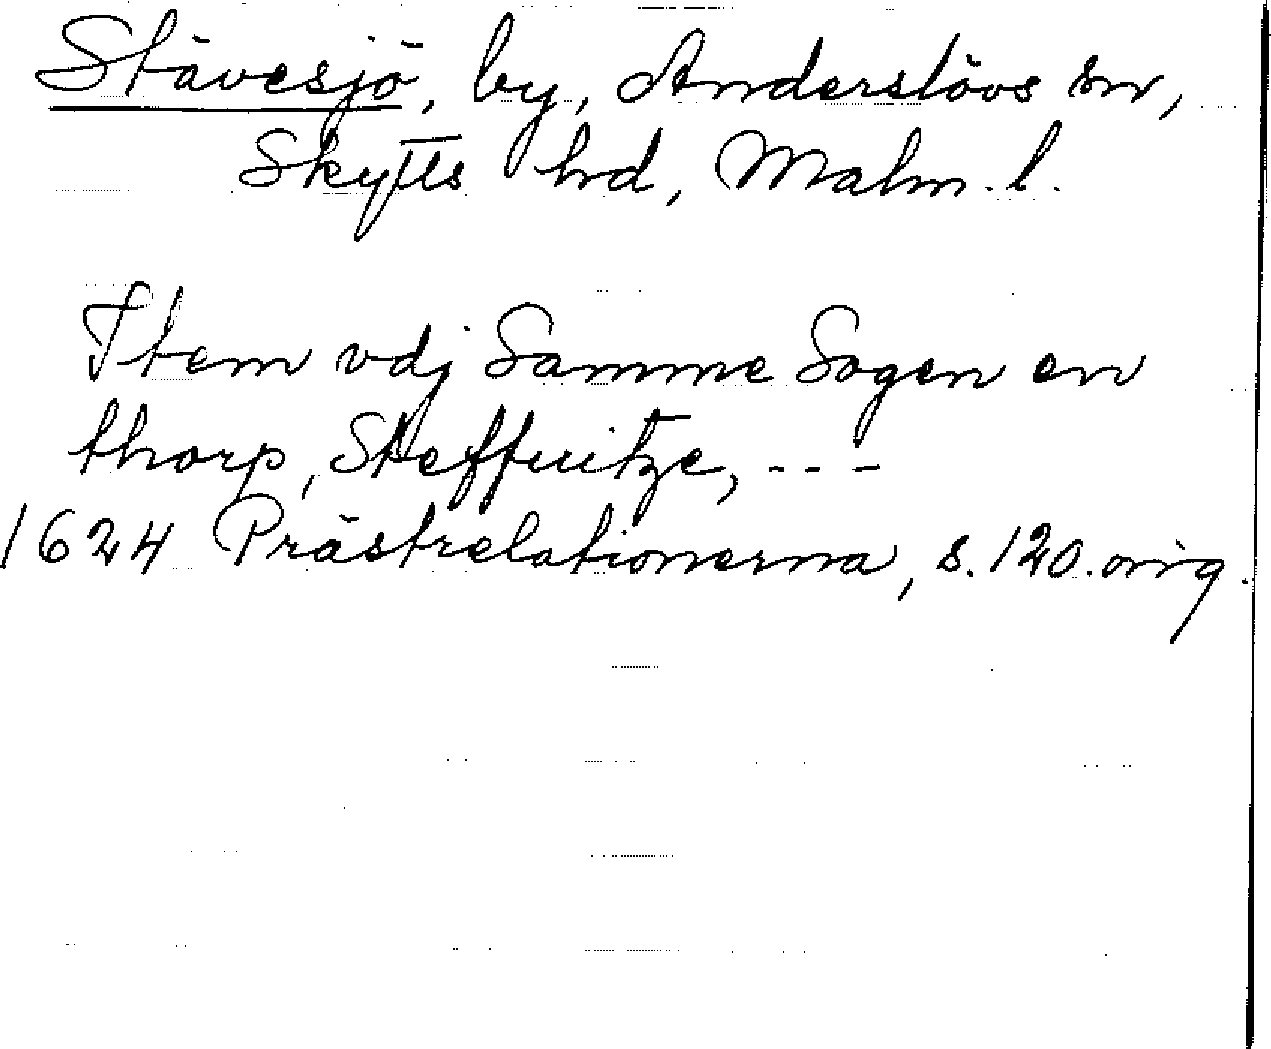 Stävesjö, by, Anderslövs sn,
Skytts hd, Malm. l.
Item vdj Samme Sogen en
thorp, Steffuitze, - - -
1624 Prästrelationerna, s. 120. orig.